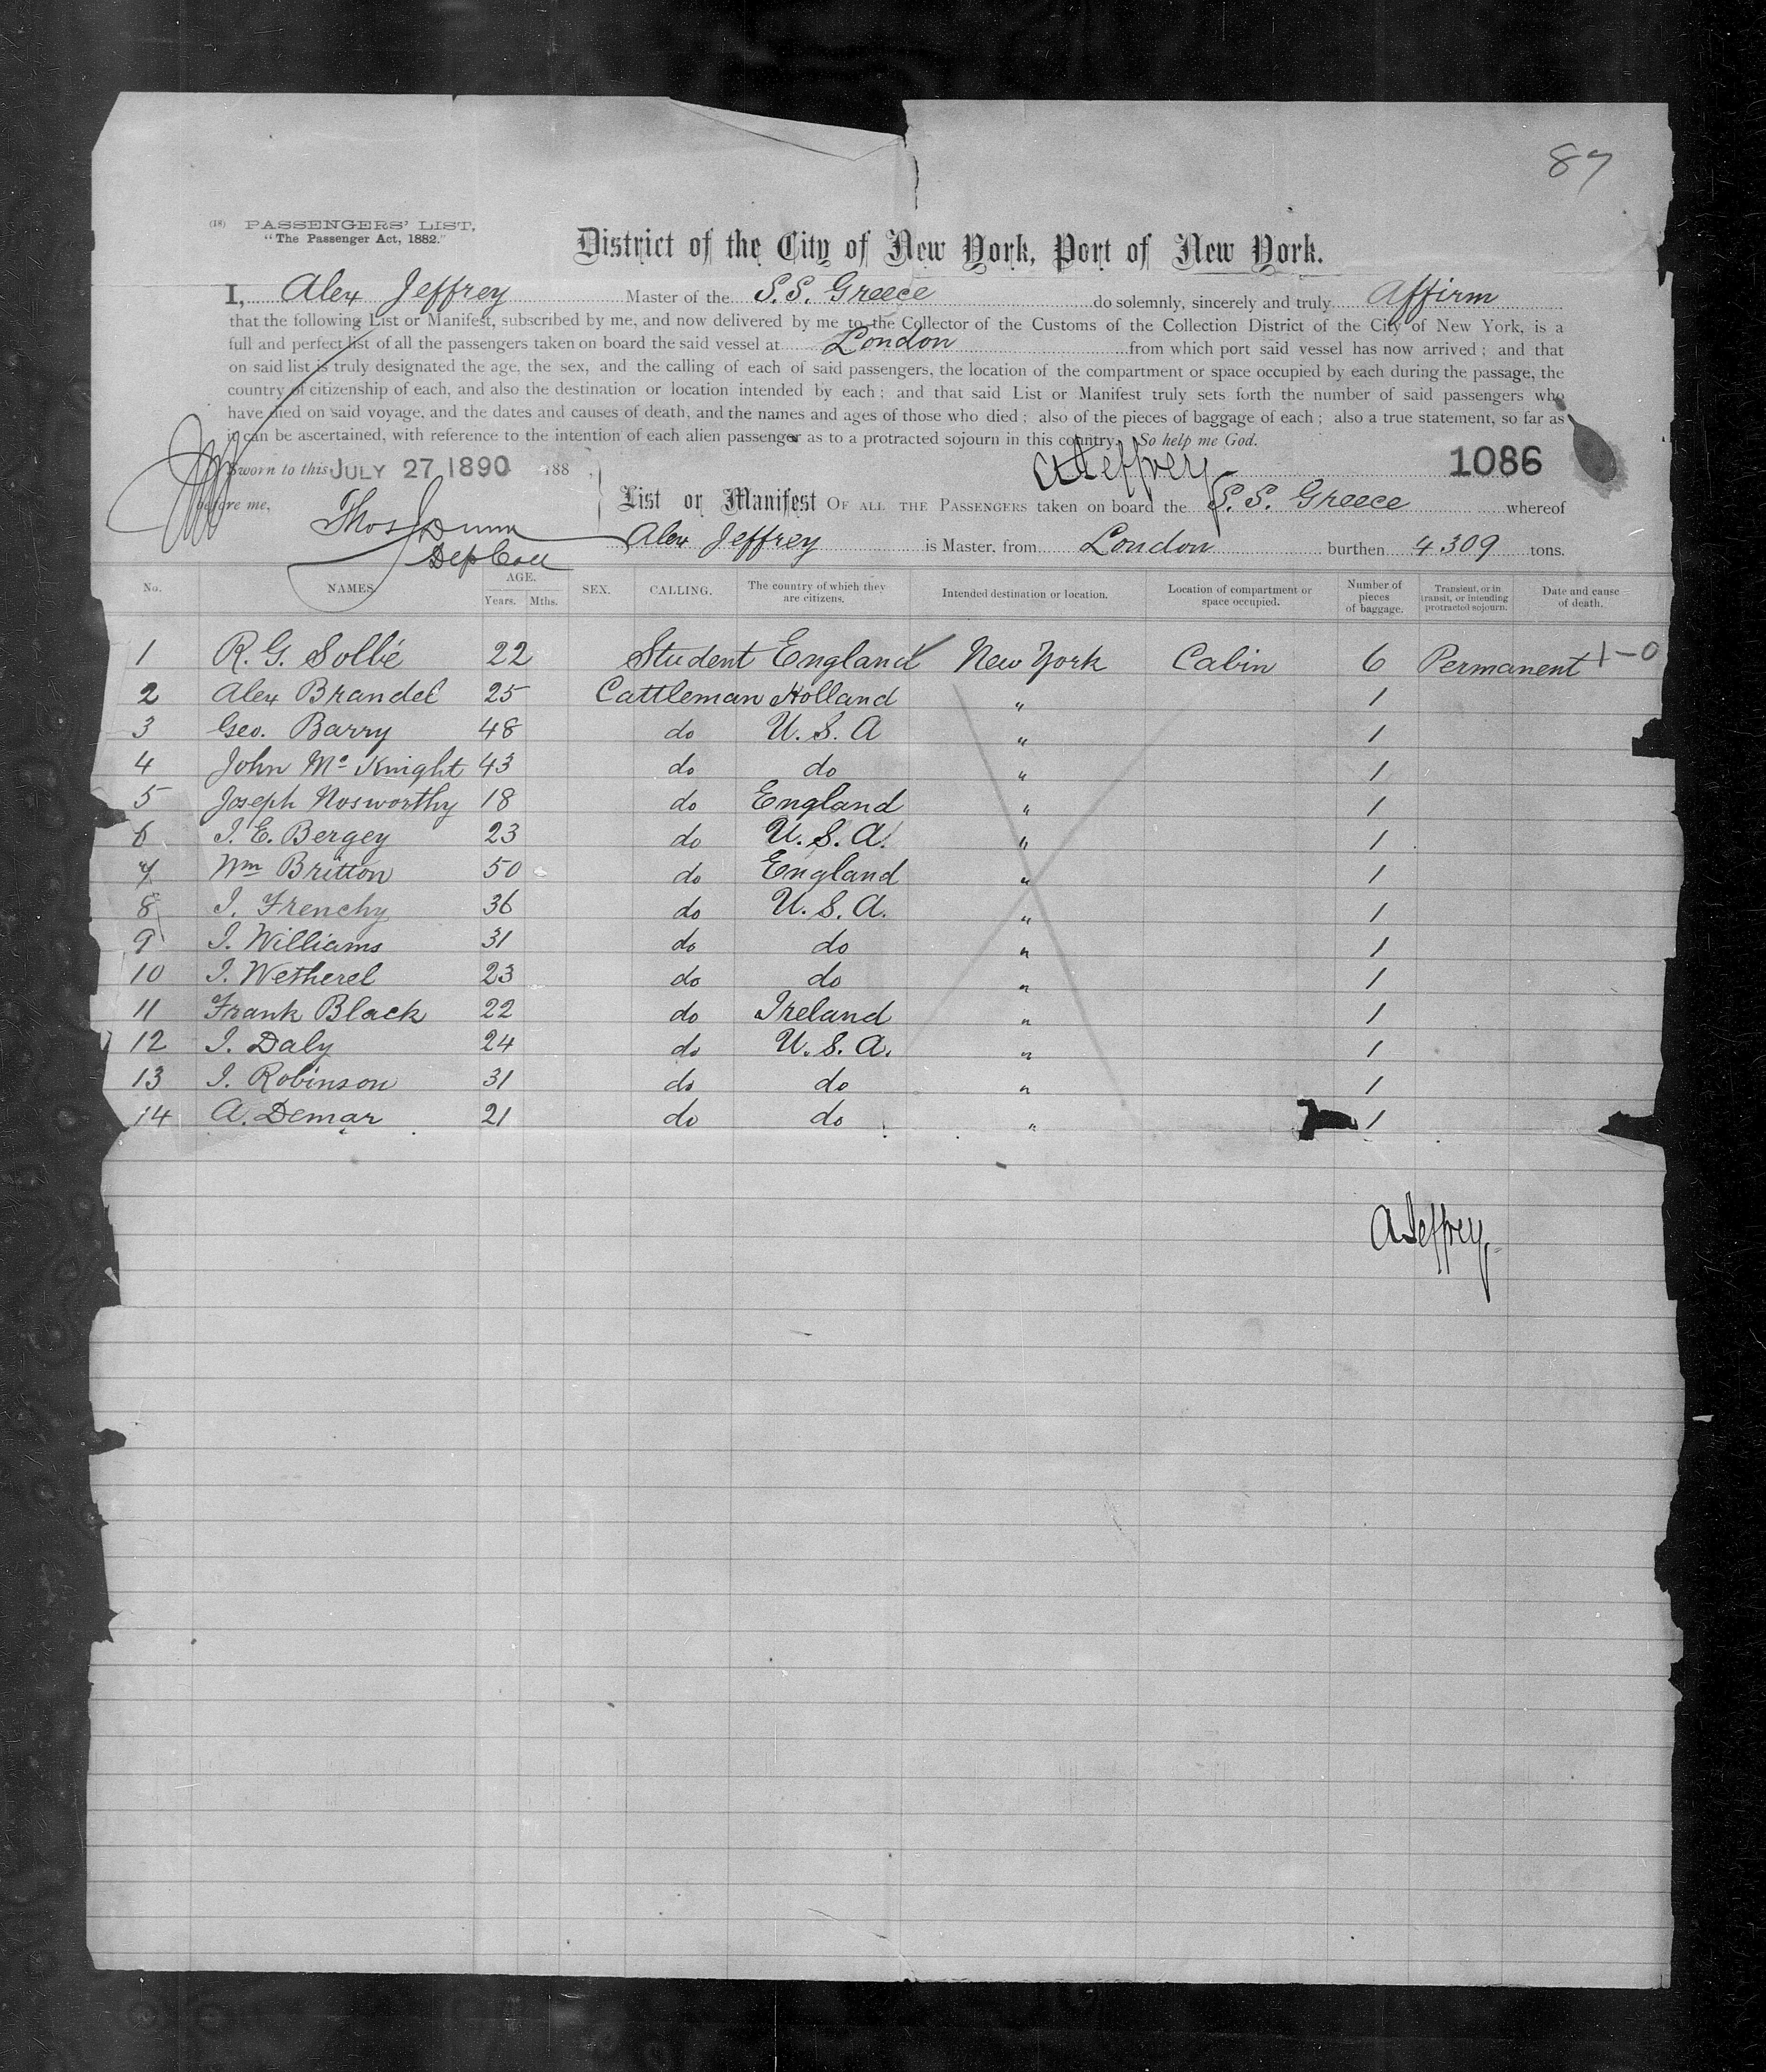 87
(18) PASSENGERS' LIST,
"The Passenger Act, 1882."
District of the City of New York, Port of New York.
I, Alex Jeffrey Master of the S.S. Greece do solemnly, sincerely and truly Affirm
that the following List or Manifest, subscribed by me, and now delivered by me to the Collector of the Customs of the Collection District of the City of New York, is a
full and perfect list of all the passengers taken on board the said vessel at London from which port said vessel has now arrived; and that
on said list is truly designated the age, the sex, and the calling of each of said passengers, the location of the compartment or space occupied by each during the passage, the
country of citizenship of each, and also the destination or location intended by each; and that said List or Manifest truly sets forth the number of said passengers who
have died on said voyage, and the dates and causes of death, and the names and ages of those who died; also of the pieces of baggage of each; also a true statement, so far as
it can be ascertained, with reference to the intention of each alien passenger as to a protracted sojourn in this country. So help me God.
Sworn to this JULY 27 1890 188 AJeffrey 1086
before me, List or Manifest OF ALL THE PASSENGERS taken on board the S.S. Greece whereof
Thos Dunn
Alex Jeffrey is Master, from London burthen 4309 tons.
Dep Coll
No. NAMES. AGE. Years. Mths. SEX. CALLING. The country of which they are citizens. Intended destination or location. Location of compartment or space occupied. Number of pieces of baggage. Transient, or in transit, or intending protracted sojourn. Date and cause of death.
1 R. G. Sollé 22 Student England New York Cabin 6 Permanent 1-0
2 Alex Brandel 25 Cattleman Holland " 1
3 Geo. Barry 48 do U.S.A " 1
4 John Mc Knight 43 do do " 1
5 Joseph Nosworthy 18 do England " 1
6 I. E. Bergey 23 do U.S.A. " 1
7 Wm Britton 50 do England " 1
8 I. Frenchy 36 do U.S.A. " 1
9 I. Williams 31 do do " 1
10 I. Wetherel 23 do do " 1
11 Frank Black 22 do Ireland " 1
12 I. Daly 24 do U.S.A. " 1
13 I. Robinson 31 do do " 1
14 A. Demar 21 do do " 1
AJeffrey